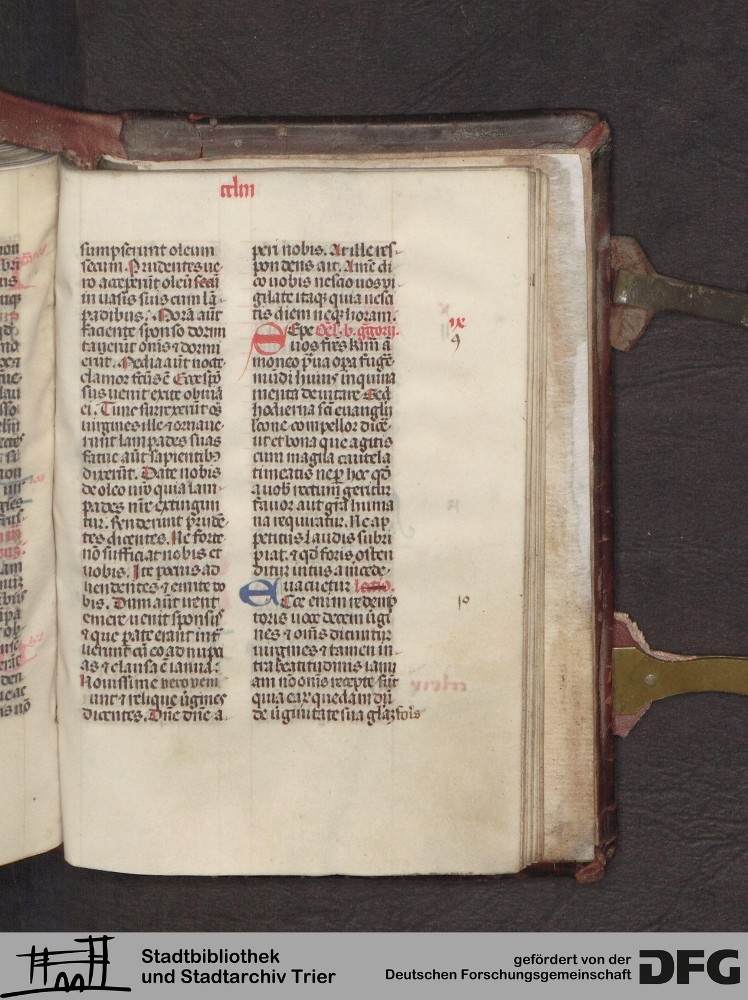 cclııı
sumpserunt oleum
secum. Prudentes ue-
ro acceperūt oleū secū
in uasis suis cum lā-
padibus. Morā aūt
faciente sponso dormi
tauerūt om̄s ⁊ dormi
erūt. Media aūt nocte
clamor fc̄us ē Ecce spō
sus uenit exite obuiā
ei. Tunc surrexerūt oēs
uirgines ille ⁊ ornaue-
runt lampades suas
fatue aūt sapientibꝫ
dixerūt. Date nobis
de oleo ur̄o quia lam-
pades nr̄e extingun
tur. Rn̄derunt prudē-
tes dicentes. Ne forte
nō sufficiat nobis et
uobis. Ite pocius ad
uendentes ⁊ emite uo
bis. Dum aūt irent
emere uenit sponsus
⁊ que parate erāt int̄
uerunt cū eo ad nupci
as ⁊ clausa ē ianua.
Nouissime vero veni
unt ⁊ relique u̓gines
dicentes. Dn̄e dn̄e a-
peri nobis. At ille res-
pondens ait. Amē di
co uobis nescio uos vi
gilate itaqꝫ quia nesci
tis diem neqꝫ horam.
Sepe Om̄l. b. g̓gorij.
uos frēs kar̄mi ā
moneo praua opa fugē
mūdi huius inquina
menta deuitare Sed
hodierna sc̄i euangelij
lc̄one compellor dice-
ut et bona que agitis
cum magna cautela
timeatis ne p̲ hoc qd̄
a uob̄ rectum geritur
fauor aut gr̄a huma
na requiratur. Ne ap
petitus laudis subri
piat. ⁊ qd̄ foris osten
ditur intus a mcede
euacuetur
Ecce enim redemp
toris uoce decem u̓gi
nes ⁊ om̄s dicuntur
uirgines ⁊ tamen in
tra beatitudinis ianu
am nō om̄s recepte sūt
quia earꝫ quedam dū
de u̓ginitate sua gl̄aꝫ foīs
ıx
9
10
Stadtbibliothek
und Stadtarchiv Trier
gefördert von der
Deutschen Forschungsgemeinschaft
DFG